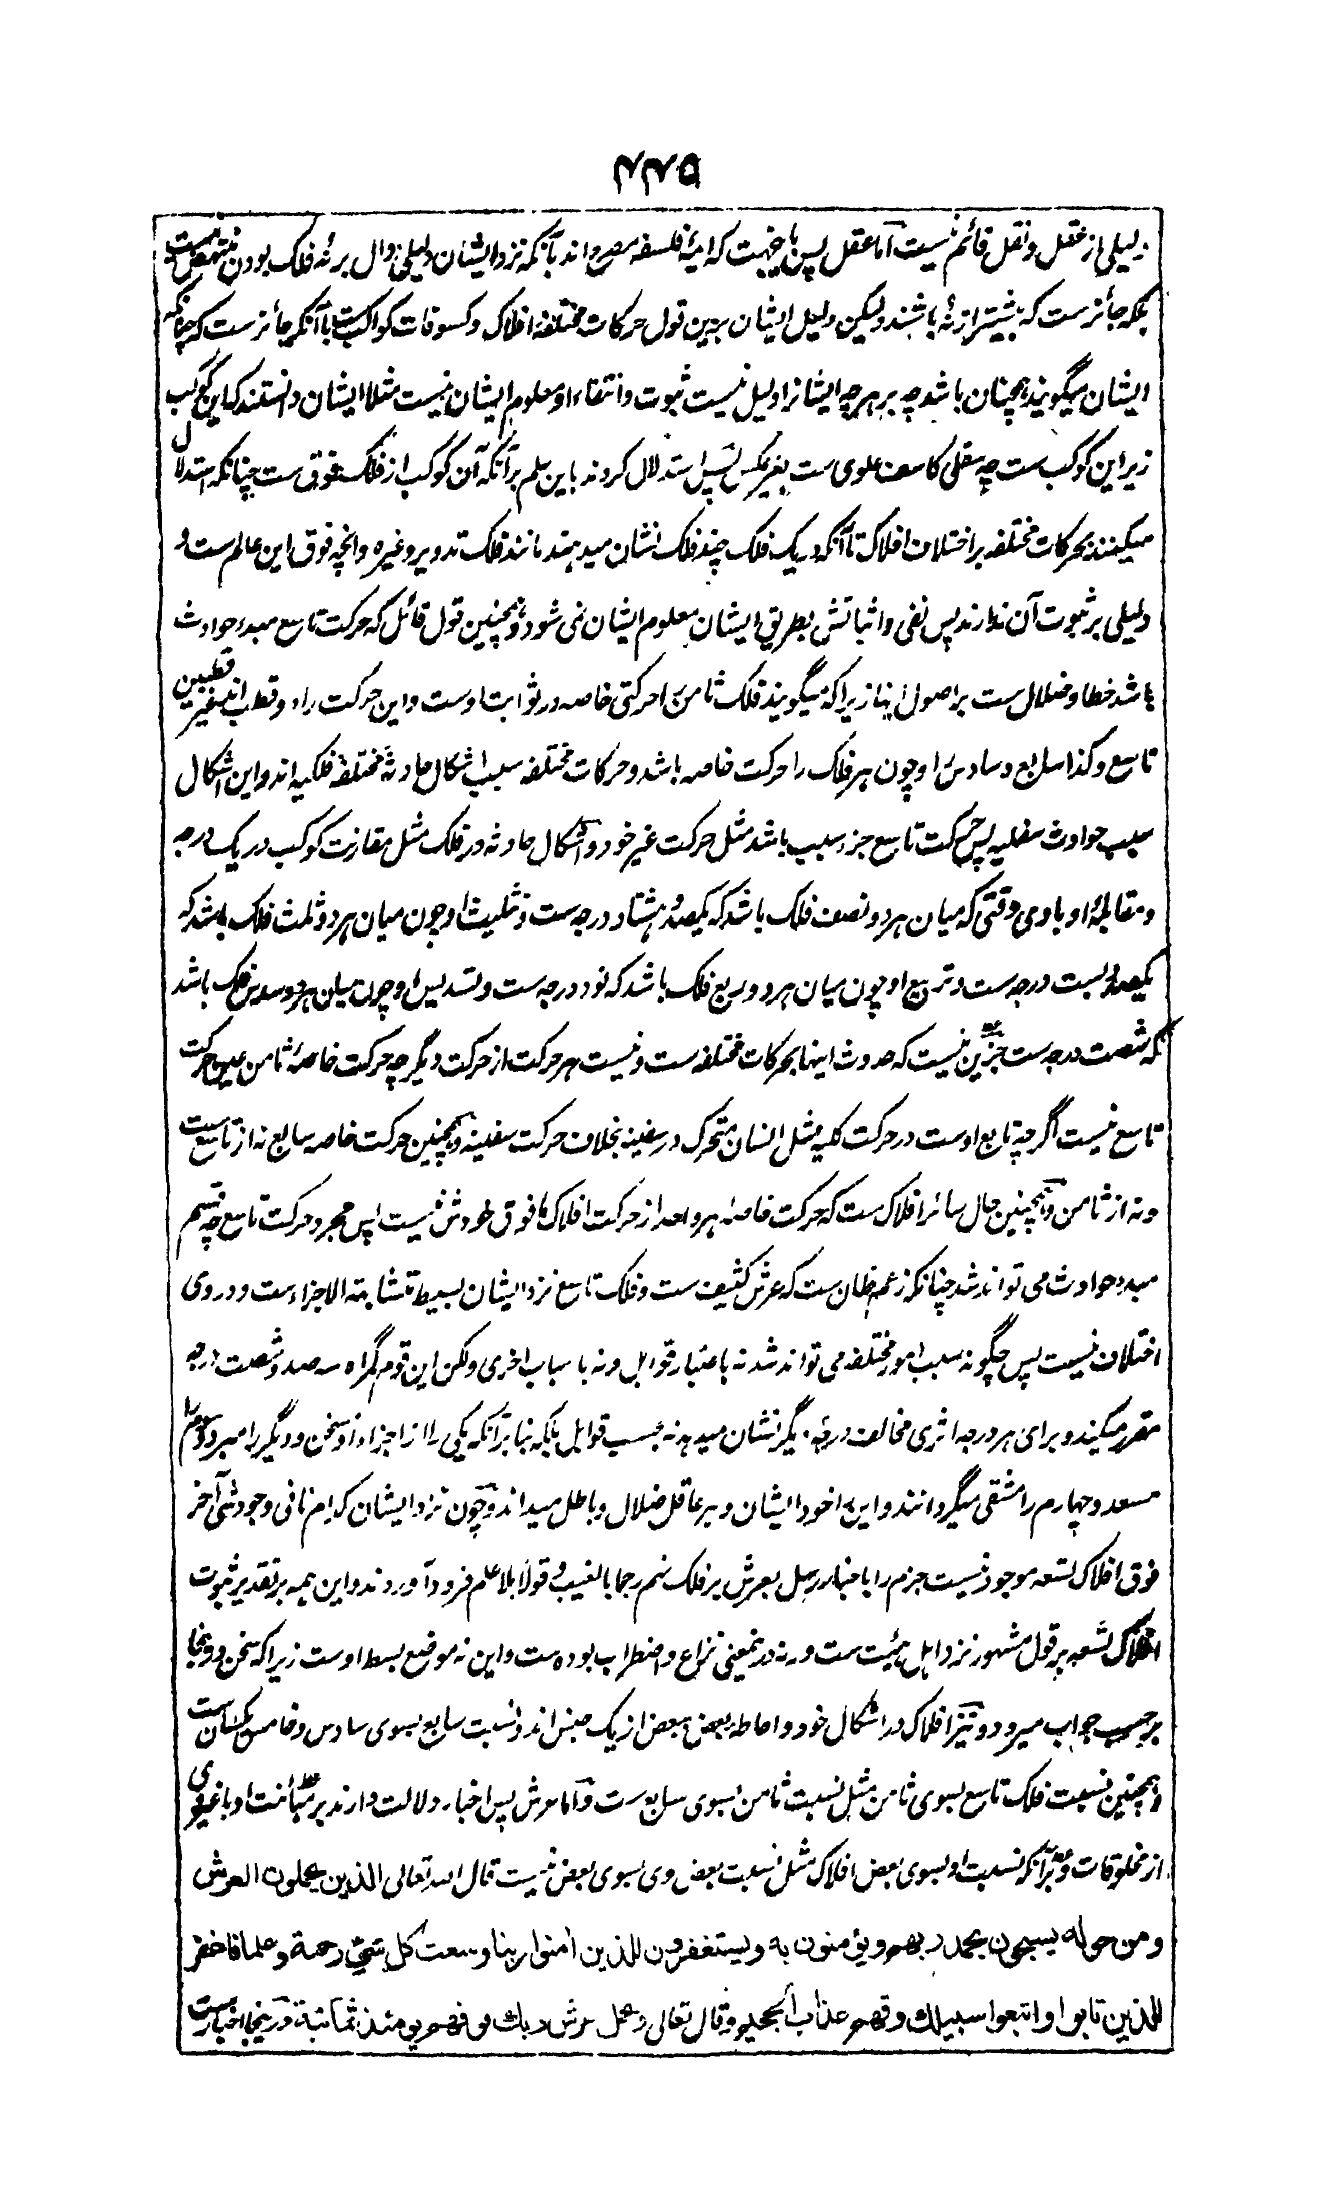 ۴۴۵
دلیلی از عقل و نقل قائم نیست اما عقل پس باینجهت که ائمهٔ فلسفه مصرح اند بآنکه نزد ایشان دلیلی دال بر نه فلک بودن منتهض نیست
بلکه جائزست که بیشتر از نه باشند و لیکن دلیل ایشان برین قول حرکات مختلفهٔ افلاک و کسوفات کواکب ست با آنکه جائزست که چنانکه
ایشان میگویند همچنان باشد چه بر هرچه ایشانرا دلیل نیست ثبوت و انتفاء او معلوم ایشان نیست مثلا ایشان دانستند که این کوکب
زیر این کوکب ست چه سفلی کاسف علوی ست بغیر عکس پس استدلال کردند باین علم بر آنکه آن کوکب از فلک فوق ست چنانکه استدلال
میکنند بحرکات مختلفه بر اختلاف افلاک تا آنکه در یک فلک چند فلک نشان میدهند مانند فلک تدویر و غیره و انچه فوق این عالم ست و
دلیلی بر ثبوت آن ندارند پس نفی و اثباتش بطریق ایشان معلوم ایشان نمی شود و همچنین قول قائل که حرکت تاسع مبدء حوادث
باشد خطا و ضلال ست بر اصول اینها زیرا که میگویند فلک ثامن را حرکتی خاصه در ثوابت اوست و این حرکت را دو قطب اند غیر قطبین
تاسع و کذا سابع و سادس را و چون هر فلک را حرکت خاصه باشد و حرکات مختلفه سبب اشکال حادثهٔ مختلفهٔ فلکیه اند و این اشکال
سبب حوادث سفلیه پس حرکت تاسع جزء سبب باشد مثل حرکت غیر خود و اشکال حادثه در فلک مثل مقارنت کوکب در یک درجه
و مقابلهٔ او با وی وقتی که میان هر دو نصف فلک باشد که یکصد و هشتاد درجه ست و تثلیث او چون میان هر دو ثلث فلک باشد که
یکصد و بست درجه ست و تربیع او چون میان هر دو ربع فلک باشد که نود درجه ست و تسدیس او چون میان هر دو سدس فلک باشد
که شصت درجه ست جز این نیست که حدوث اینها بحرکات مختلفه ست و نیست هر حرکت از حرکت دیگر چه حرکت خاصهٔ ثامن عین حرکت
تاسع نیست اگرچه تابع اوست در حرکت کلیه مثل انسان متحرک در سفینه بخلاف حرکت سفینه و همچنین حرکت خاصه سابع نه از تاسع ست
و نه از ثامن و همچنین حال سائر افلاک ست که حرکت خاصهٔ هر واحد از حرکت افلاک ما فوق خودش نیست پس مجرد حرکت تاسع چه قسم
مبدء حوادث می تواند شد چنانکه زعم ظان ست که عرش کثیف ست و فلک تاسع نزد ایشان بسیط متشابهة الاجزاء ست و در وی
اختلاف نیست پس چگونه سبب امور مختلفه می تواند شد نه باعتبار قوابل و نه باسباب اخری و لکن این قوم گمراه سه صد و شصت درجه
مقرر میکنند و برای هر درجه اثری مخالف درجهٔ دیگر نشان میدهند نه بحسب قوابل بلکه بنا بر آنکه یکی را از اجزاء او سخن و دیگر را مبرد و سوم را
مسعد و چهارم را مشقی میگردانند و این را خود ایشان و هر عاقل ضلال و باطل میداند و چون نزد ایشان کدام نافی وجود شی آخر
فوق افلاک تسعه موجود نیست جزم را باخبار رسل بعرش بر فلک نهم رجما بالغیب و قولا بلا علم فرود آوردند و این همه بر تقدیر ثبوت
افلاک تسعه بر قول مشهور نزد اهل هیئت ست ورنه درینمعنی نزاع و اضطراب بوده ست و این نه موضع بسط اوست زیرا که سخن درینجا
برحسب جواب میرود و نیز افلاک در اشکال خود و احاطهٔ بعض ببعض از یک جنس اند و نسبت سابع بسوی سادس و خامس یکسان ست
و همچنین نسبت فلک تاسع بسوی ثامن مثل نسبت ثامن بسوی سابع ست و اما عرش پس اخبار دلالت دارند بر مبائنت او با غیر وی
از مخلوقات و بر آنکه نسبت او بسوی بعض افلاک مثل نسبت بعض وی بسوی بعض نیست قال الله تعالی الذین یحملون العرش
ومن حوله یسبحون بحمد ربهم ویؤمنون به ویستغفرون للذین امنوا ربنا وسعت کل شیء رحمة وعلما فاغفر
للذین تابوا واتبعوا سبیلک وقهم عذاب الجحیم وقال تعالی ویحمل عرش ربک فوقهم یومئذ ثمانیة درینجا اخبارست